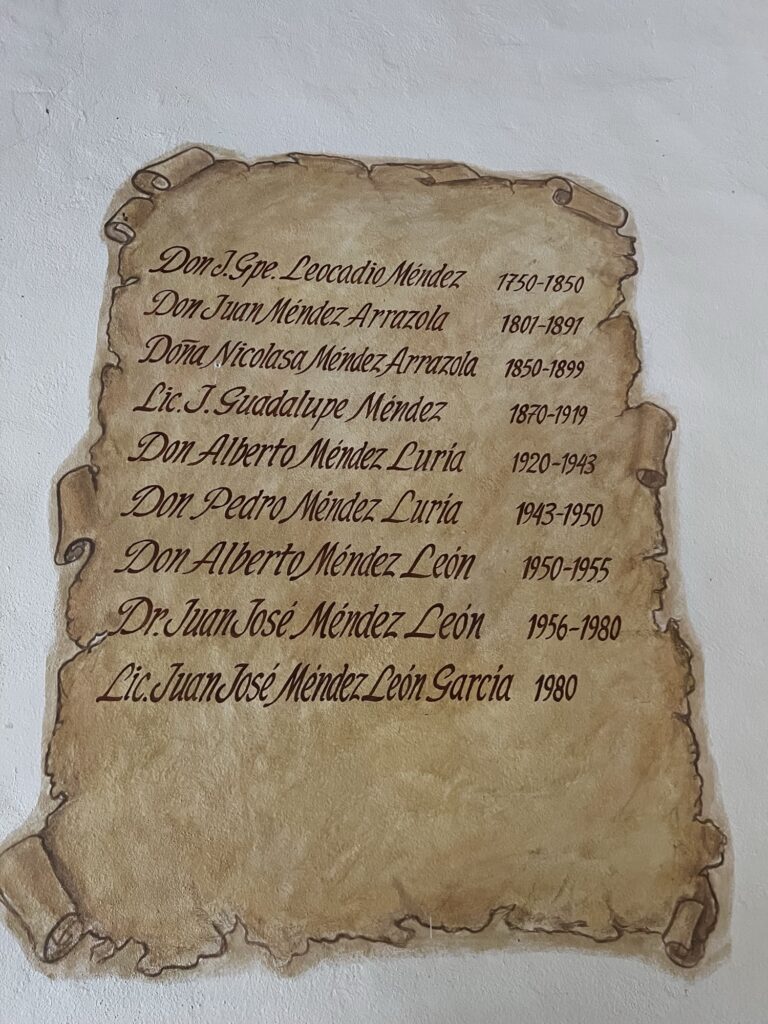 Don J. Gpe. Leocadio Méndez 1750-1850
Don Juan Méndez Arrazola 1801-1891
Doña Nicolasa Méndez Arrazola 1850-1899
Lic. J. Guadalupe Méndez 1870-1919
Don Alberto Méndez Luría 1920-1943
Don Pedro Méndez Luría 1943-1950
Don Alberto Méndez León 1950-1955
Dr. Juan José Méndez León 1956-1980
Lic. Juan José Méndez León García 1980